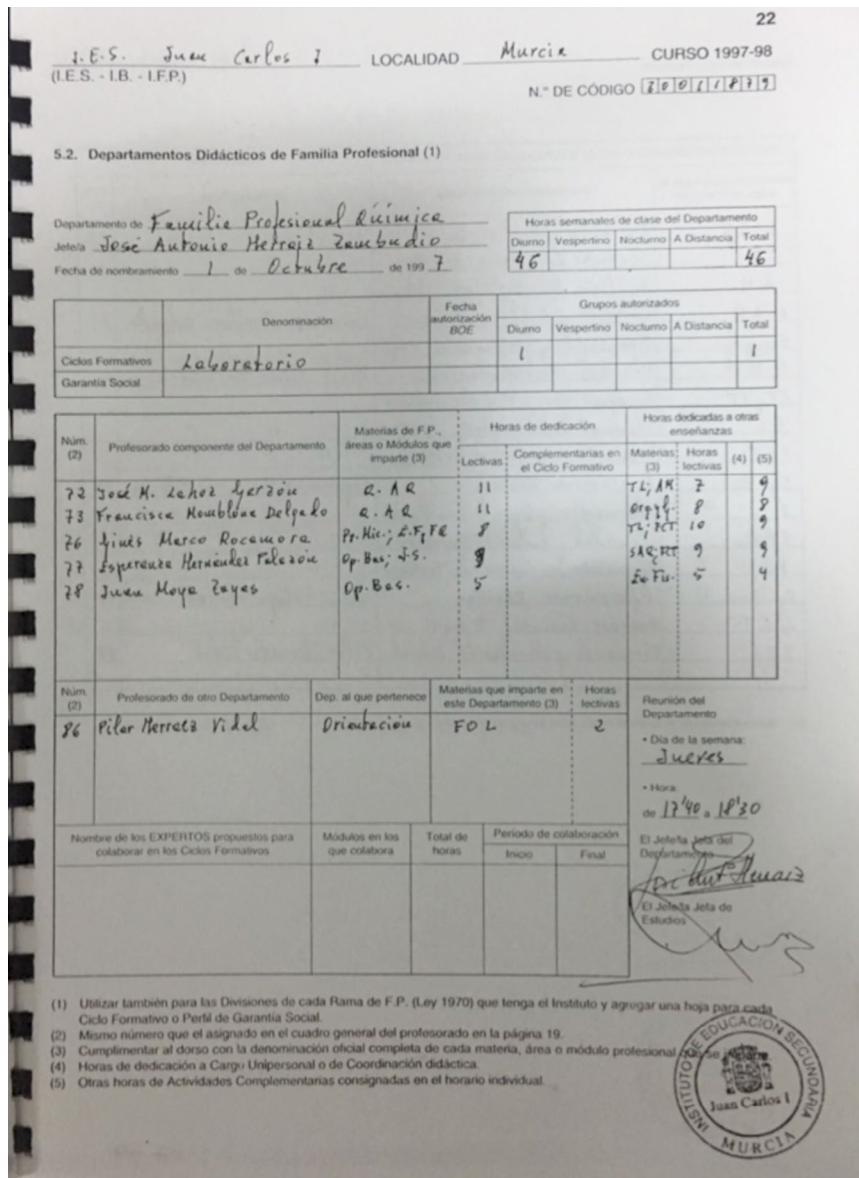 22
I.E.S. Juan Carlos I LOCALIDAD Murcia CURSO 1997-98
(I.E.S. - I.B. - I.F.P.)
N.º DE CÓDIGO 30011879
5.2. Departamentos Didácticos de Familia Profesional (1)
Departamento de Familia Profesional Química
Jefe/a José Antonio Herraiz Zambudio
Fecha de nombramiento 1 de Octubre de 1997
Horas semanales de clase del Departamento
Diurno Vespertino Nocturno A Distancia Total
46 46
Denominación Fecha autorización BOE Grupos autorizados
Diurno Vespertino Nocturno A Distancia Total
Ciclos Formativos Laboratorio 1 1
Garantía Social
Núm. (2) Profesorado componente del Departamento Materias de F.P., áreas o Módulos que imparte (3) Horas de dedicación Horas dedicadas a otras enseñanzas
Lectivas Complementarias en el Ciclo Formativo Materias (3) Horas lectivas (4) (5)
72 José M. Lahoz Garzón Q. A Q 11 TL; AM 7 9
73 Francisca Delgado Q. A Q 11 8 8
76 Ginés Marco Rocamora Pr. Mic.; E.F; FQ 8 TL; PCT 10 9
77 Esperanza Hernández Op. Bas; J-S. 9 9
78 Juan Moya Zayas Op. Bas. 5 5 4
Núm. (2) Profesorado de otro Departamento Dep. al que pertenece Materias que imparte en este Departamento (3) Horas lectivas
86 Pilar Herraiz Vidal Orientación FOL 2
Reunión del Departamento
• Día de la semana:
Jueves
• Hora
de 17'40 a 18'30
Nombre de los EXPERTOS propuestos para colaborar en los Ciclos Formativos Módulos en los que colabora Total de horas Periodo de colaboración
Inicio Final
El Jefe/la Jefa del Departamento
El Jefe/la Jefa de Estudios
(1) Utilizar también para las Divisiones de cada Rama de F.P. (Ley 1970) que tenga el Instituto y agregar una hoja para cada
Ciclo Formativo o Perfil de Garantía Social.
(2) Mismo número que el asignado en el cuadro general del profesorado en la página 19.
(3) Cumplimentar al dorso con la denominación oficial completa de cada materia, área o módulo profesional que se
(4) Horas de dedicación a Cargo Unipersonal o de Coordinación didáctica.
(5) Otras horas de Actividades Complementarias consignadas en el horario individual.
INSTITUTO DE EDUCACIÓN SECUNDARIA
Juan Carlos I
MURCIA